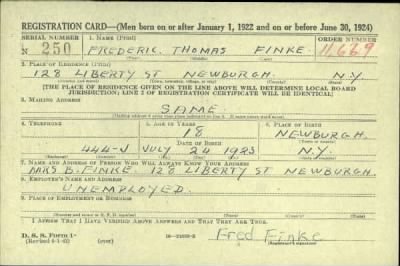 REGISTRATION CARD—(Men born on or after January 1, 1922 and on or before June 30, 1924)
SERIAL NUMBER 1. NAME (Print) ORDER NUMBER
N 250 FREDERIC THOMAS FINKE 11,629
(First) (Middle) (Last)
2. PLACE OF RESIDENCE (Print)
128 LIBERTY ST NEWBURGH. N.Y.
(Number and street) (Town, township, village, or city) (County) (State)
[THE PLACE OF RESIDENCE GIVEN ON THE LINE ABOVE WILL DETERMINE LOCAL BOARD
JURISDICTION; LINE 2 OF REGISTRATION CERTIFICATE WILL BE IDENTICAL]
3. MAILING ADDRESS
SAME
4. TELEPHONE 5. AGE IN YEARS 6. PLACE OF BIRTH
18 NEWBURGH.
DATE OF BIRTH
444-J JULY 24 1923 N.Y.
7. NAME AND ADDRESS OF PERSON WHO WILL ALWAYS KNOW YOUR ADDRESS
MRS B. FINKE. 128 LIBERTY ST NEWBURGH
8. EMPLOYER'S NAME AND ADDRESS
UNEMPLOYED.
9. PLACE OF EMPLOYMENT OR BUSINESS
I AFFIRM THAT I HAVE VERIFIED ABOVE ANSWERS AND THAT THEY ARE TRUE.
D. S. S. Form 1
Fred Finke